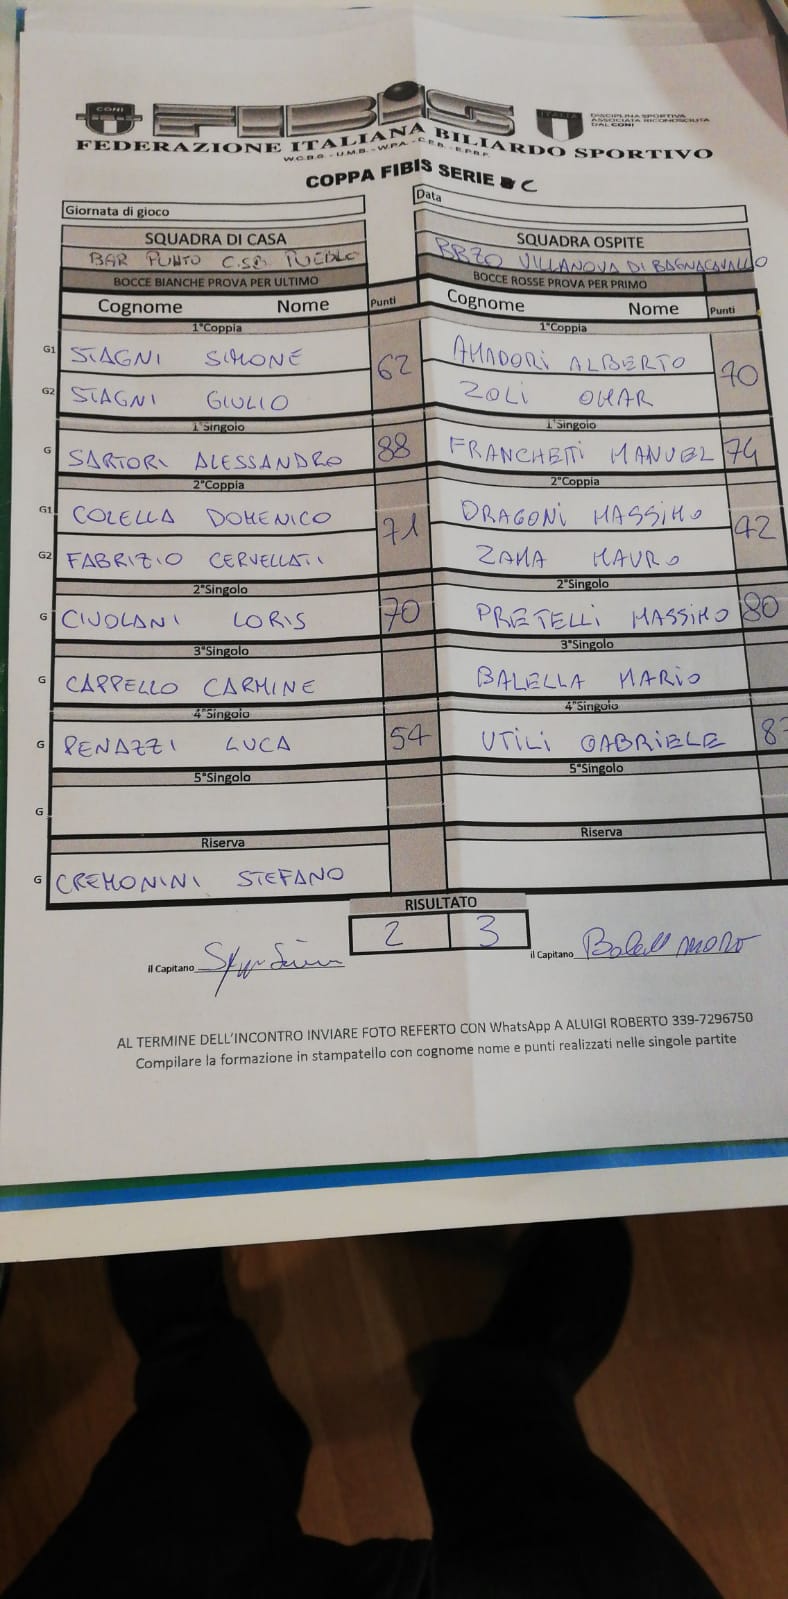 CONI
FIBIS
ITALIA
DISCIPLINA SPORTIVA
ASSOCIATA RICONOSCIUTA
DAL CONI
FEDERAZIONE ITALIANA BILIARDO SPORTIVO
W.C.B.S. - U.M.B. - W.P.A. - C.E.B. - E.P.B.F.
COPPA FIBIS SERIE C
Giornata di gioco
Data
SQUADRA DI CASA
SQUADRA OSPITE
BAR PUNTO C.SB. PUEBLO
BBZO VILLANOVA DI BAGNACAVALLO
BOCCE BIANCHE PROVA PER ULTIMO
BOCCE ROSSE PROVA PER PRIMO
Cognome Nome Punti
Cognome Nome Punti
1°Coppia
1°Coppia
G1 STAGNI SIMONE 62
AMADORI ALBERTO 70
G2 STAGNI GIULIO
ZOLI OMAR
1°Singolo
1°Singolo
G SARTORI ALESSANDRO 88
FRANCHETTI MANUEL 74
2°Coppia
2°Coppia
G1 COLELLA DOMENICO 71
DRAGONI MASSIMO 42
G2 FABRIZIO CERVELLATI
ZAMA MAURO
2°Singolo
2°Singolo
G CIVOLANI LORIS 70
PRETELLI MASSIMO 80
3°Singolo
3°Singolo
G CAPPELLO CARMINE
BALELLA MARIO
4°Singolo
4°Singolo
G PENAZZI LUCA 54
UTILI GABRIELE
5°Singolo
5°Singolo
G
Riserva
Riserva
G CREMONINI STEFANO
RISULTATO
2 3
il Capitano
il Capitano
AL TERMINE DELL'INCONTRO INVIARE FOTO REFERTO CON WhatsApp A ALUIGI ROBERTO 339-7296750
Compilare la formazione in stampatello con cognome nome e punti realizzati nelle singole partite